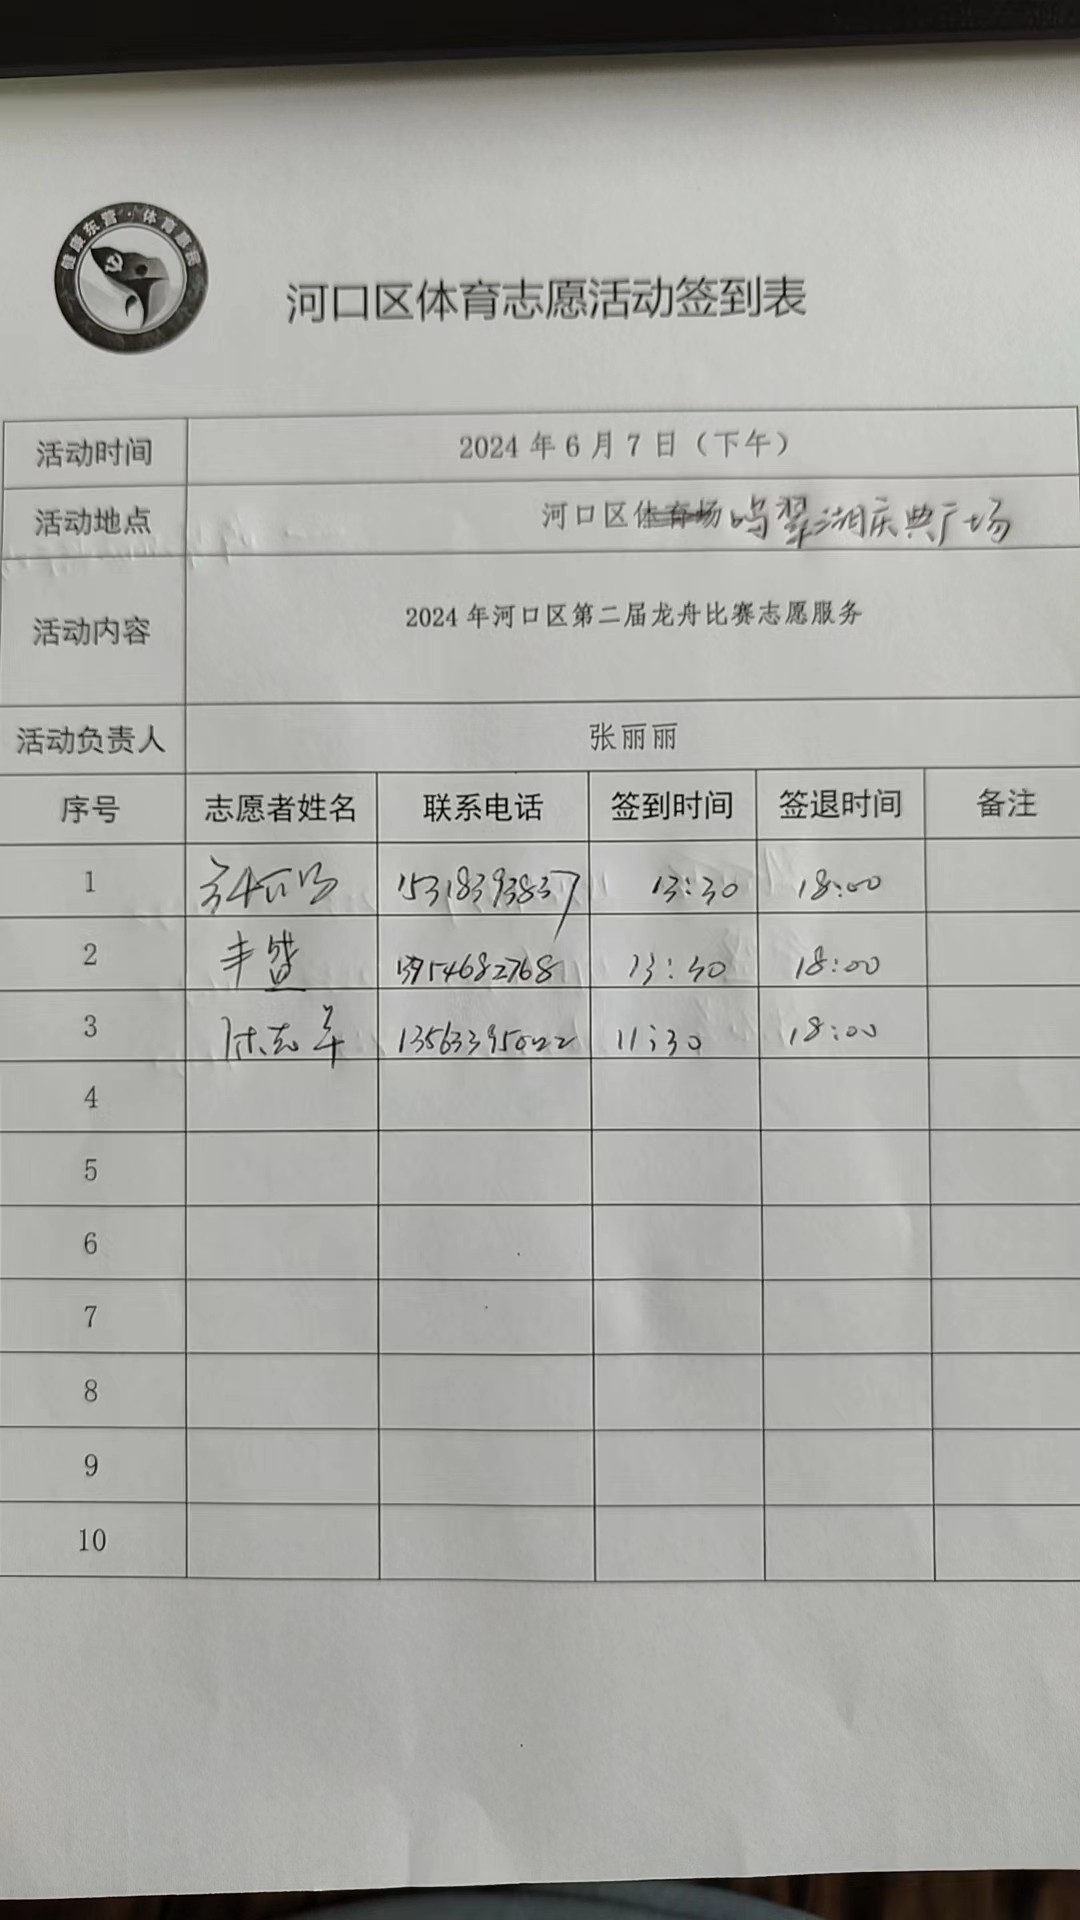 健康东营·体育惠民
河口区体育志愿活动签到表
活动时间 2024年6月7日（下午）
活动地点 河口区体育场 鸣翠湖庆典广场
活动内容 2024年河口区第二届龙舟比赛志愿服务
活动负责人 张丽丽
序号 志愿者姓名 联系电话 签到时间 签退时间 备注
1 15318393837 13:30 18:00
2 丰盛 13954682768 13:30 18:00
3 陈志军 13563395022 11:30 18:00
4
5
6
7
8
9
10